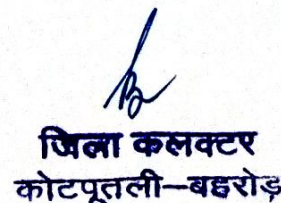 जिला कलक्टर
कोटपूतली–बहरोड़